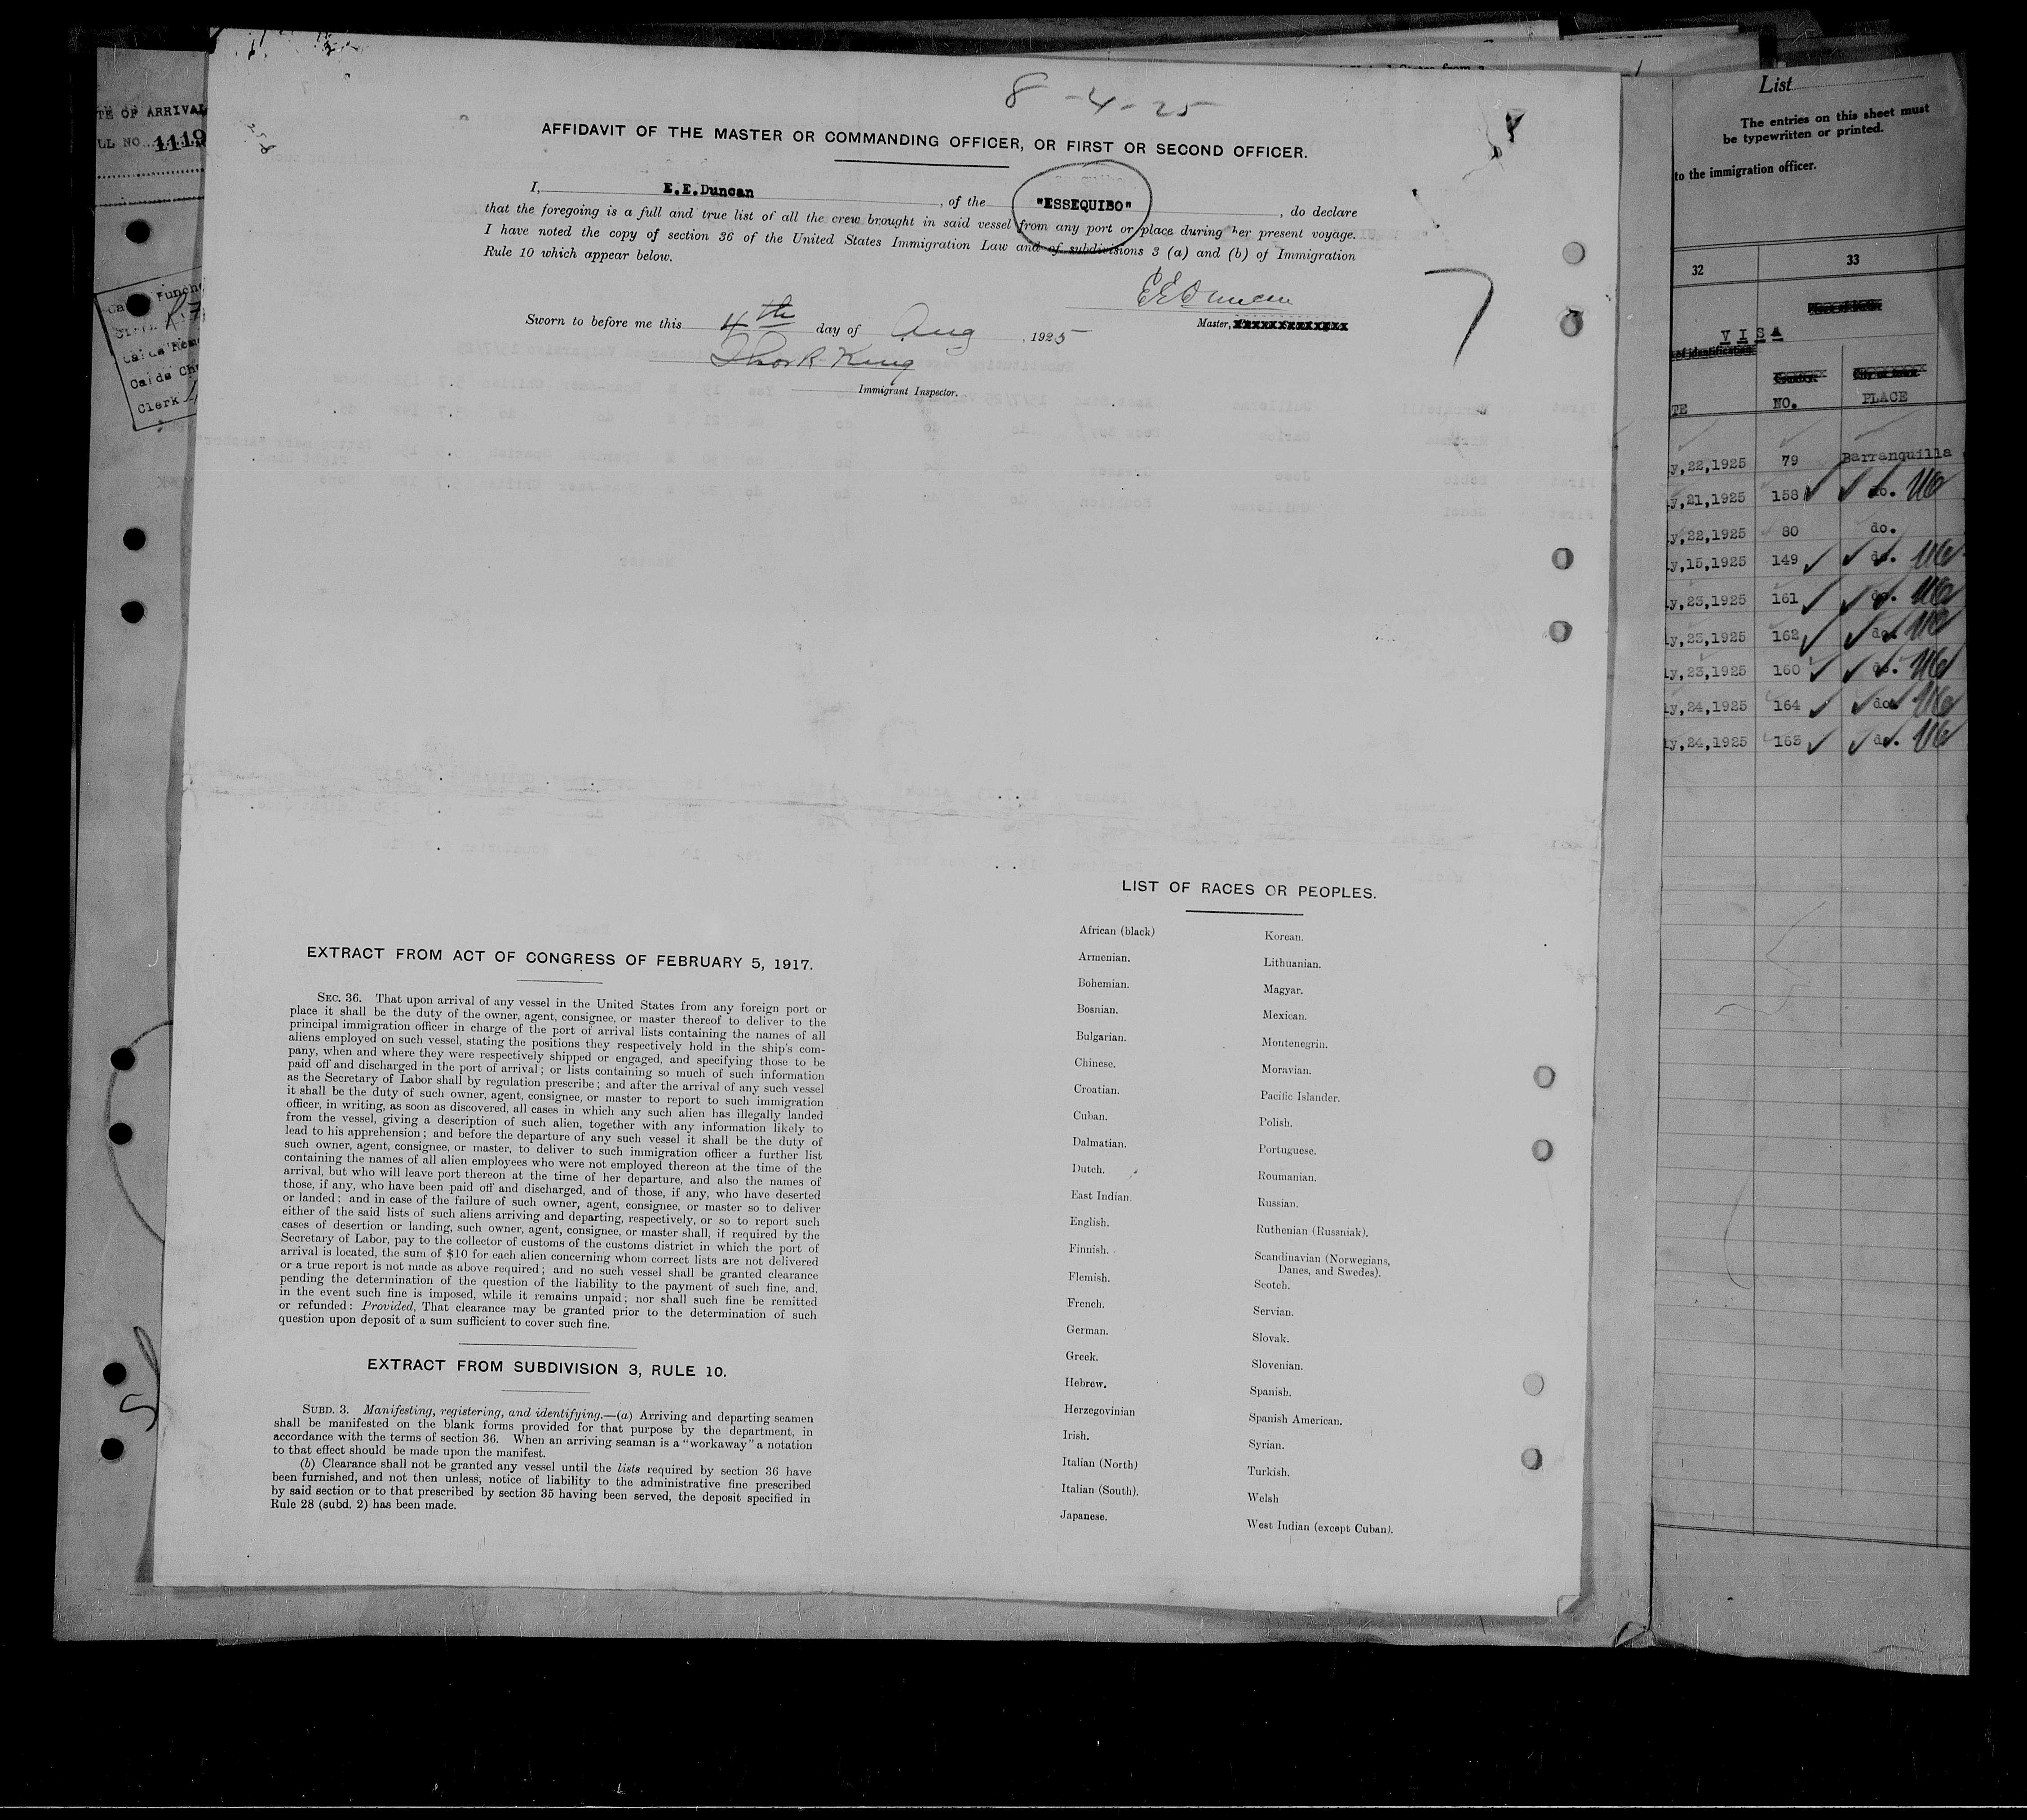 8-4-25
AFFIDAVIT OF THE MASTER OR COMMANDING OFFICER, OR FIRST OR SECOND OFFICER.
I, E.E.Duncan, of the "ESSEQUIBO", do declare
that the foregoing is a full and true list of all the crew brought in said vessel from any port or place during her present voyage.
I have noted the copy of section 36 of the United States Immigration Law and of subdivisions 3 (a) and (b) of Immigration
Rule 10 which appear below.
E E Duncan
Master,
Sworn to before me this 4th day of Aug, 1925
Thos R King
Immigrant Inspector.
7
EXTRACT FROM ACT OF CONGRESS OF FEBRUARY 5, 1917.
SEC. 36. That upon arrival of any vessel in the United States from any foreign port or
place it shall be the duty of the owner, agent, consignee, or master thereof to deliver to the
principal immigration officer in charge of the port of arrival lists containing the names of all
aliens employed on such vessel, stating the positions they respectively hold in the ship's com-
pany, when and where they were respectively shipped or engaged, and specifying those to be
paid off and discharged in the port of arrival; or lists containing so much of such information
as the Secretary of Labor shall by regulation prescribe; and after the arrival of any such vessel
it shall be the duty of such owner, agent, consignee, or master to report to such immigration
officer, in writing, as soon as discovered, all cases in which any such alien has illegally landed
from the vessel, giving a description of such alien, together with any information likely to
lead to his apprehension; and before the departure of any such vessel it shall be the duty of
such owner, agent, consignee, or master, to deliver to such immigration officer a further list
containing the names of all alien employees who were not employed thereon at the time of the
arrival, but who will leave port thereon at the time of her departure, and also the names of
those, if any, who have been paid off and discharged, and of those, if any, who have deserted
or landed; and in case of the failure of such owner, agent, consignee, or master so to deliver
either of the said lists of such aliens arriving and departing, respectively, or so to report such
cases of desertion or landing, such owner, agent, consignee, or master shall, if required by the
Secretary of Labor, pay to the collector of customs of the customs district in which the port of
arrival is located, the sum of $10 for each alien concerning whom correct lists are not delivered
or a true report is not made as above required; and no such vessel shall be granted clearance
pending the determination of the question of the liability to the payment of such fine, and,
in the event such fine is imposed, while it remains unpaid; nor shall such fine be remitted
or refunded: Provided, That clearance may be granted prior to the determination of such
question upon deposit of a sum sufficient to cover such fine.
EXTRACT FROM SUBDIVISION 3, RULE 10.
SUBD. 3. Manifesting, registering, and identifying.—(a) Arriving and departing seamen
shall be manifested on the blank forms provided for that purpose by the department, in
accordance with the terms of section 36. When an arriving seaman is a "workaway" a notation
to that effect should be made upon the manifest.
(b) Clearance shall not be granted any vessel until the lists required by section 36 have
been furnished, and not then unless, notice of liability to the administrative fine prescribed
by said section or to that prescribed by section 35 having been served, the deposit specified in
Rule 28 (subd. 2) has been made.
LIST OF RACES OR PEOPLES.
African (black)
Armenian.
Bohemian.
Bosnian.
Bulgarian.
Chinese.
Croatian.
Cuban.
Dalmatian.
Dutch.
East Indian.
English.
Finnish.
Flemish.
French.
German.
Greek.
Hebrew.
Herzegovinian
Irish.
Italian (North)
Italian (South).
Japanese.
Korean.
Lithuanian.
Magyar.
Mexican.
Montenegrin.
Moravian.
Pacific Islander.
Polish.
Portuguese.
Roumanian.
Russian.
Ruthenian (Russniak).
Scandinavian (Norwegians,
Danes, and Swedes).
Scotch.
Servian.
Slovak.
Slovenian.
Spanish.
Spanish American.
Syrian.
Turkish.
Welsh
West Indian (except Cuban).
TE OF ARRIVAL
LL NO. 1119
Clerk
List
The entries on this sheet must
be typewritten or printed.
to the immigration officer.
32 33
VISA
of identification
TE NO. PLACE
y,22,1925 79 Barranquilla
y,21,1925 158 do.
y,22,1925 80 do.
y,15,1925 149 do.
y,23,1925 161 do.
y,23,1925 162 do.
ly,23,1925 160 do.
ly,24,1925 164 do.
ly,24,1925 163 do.